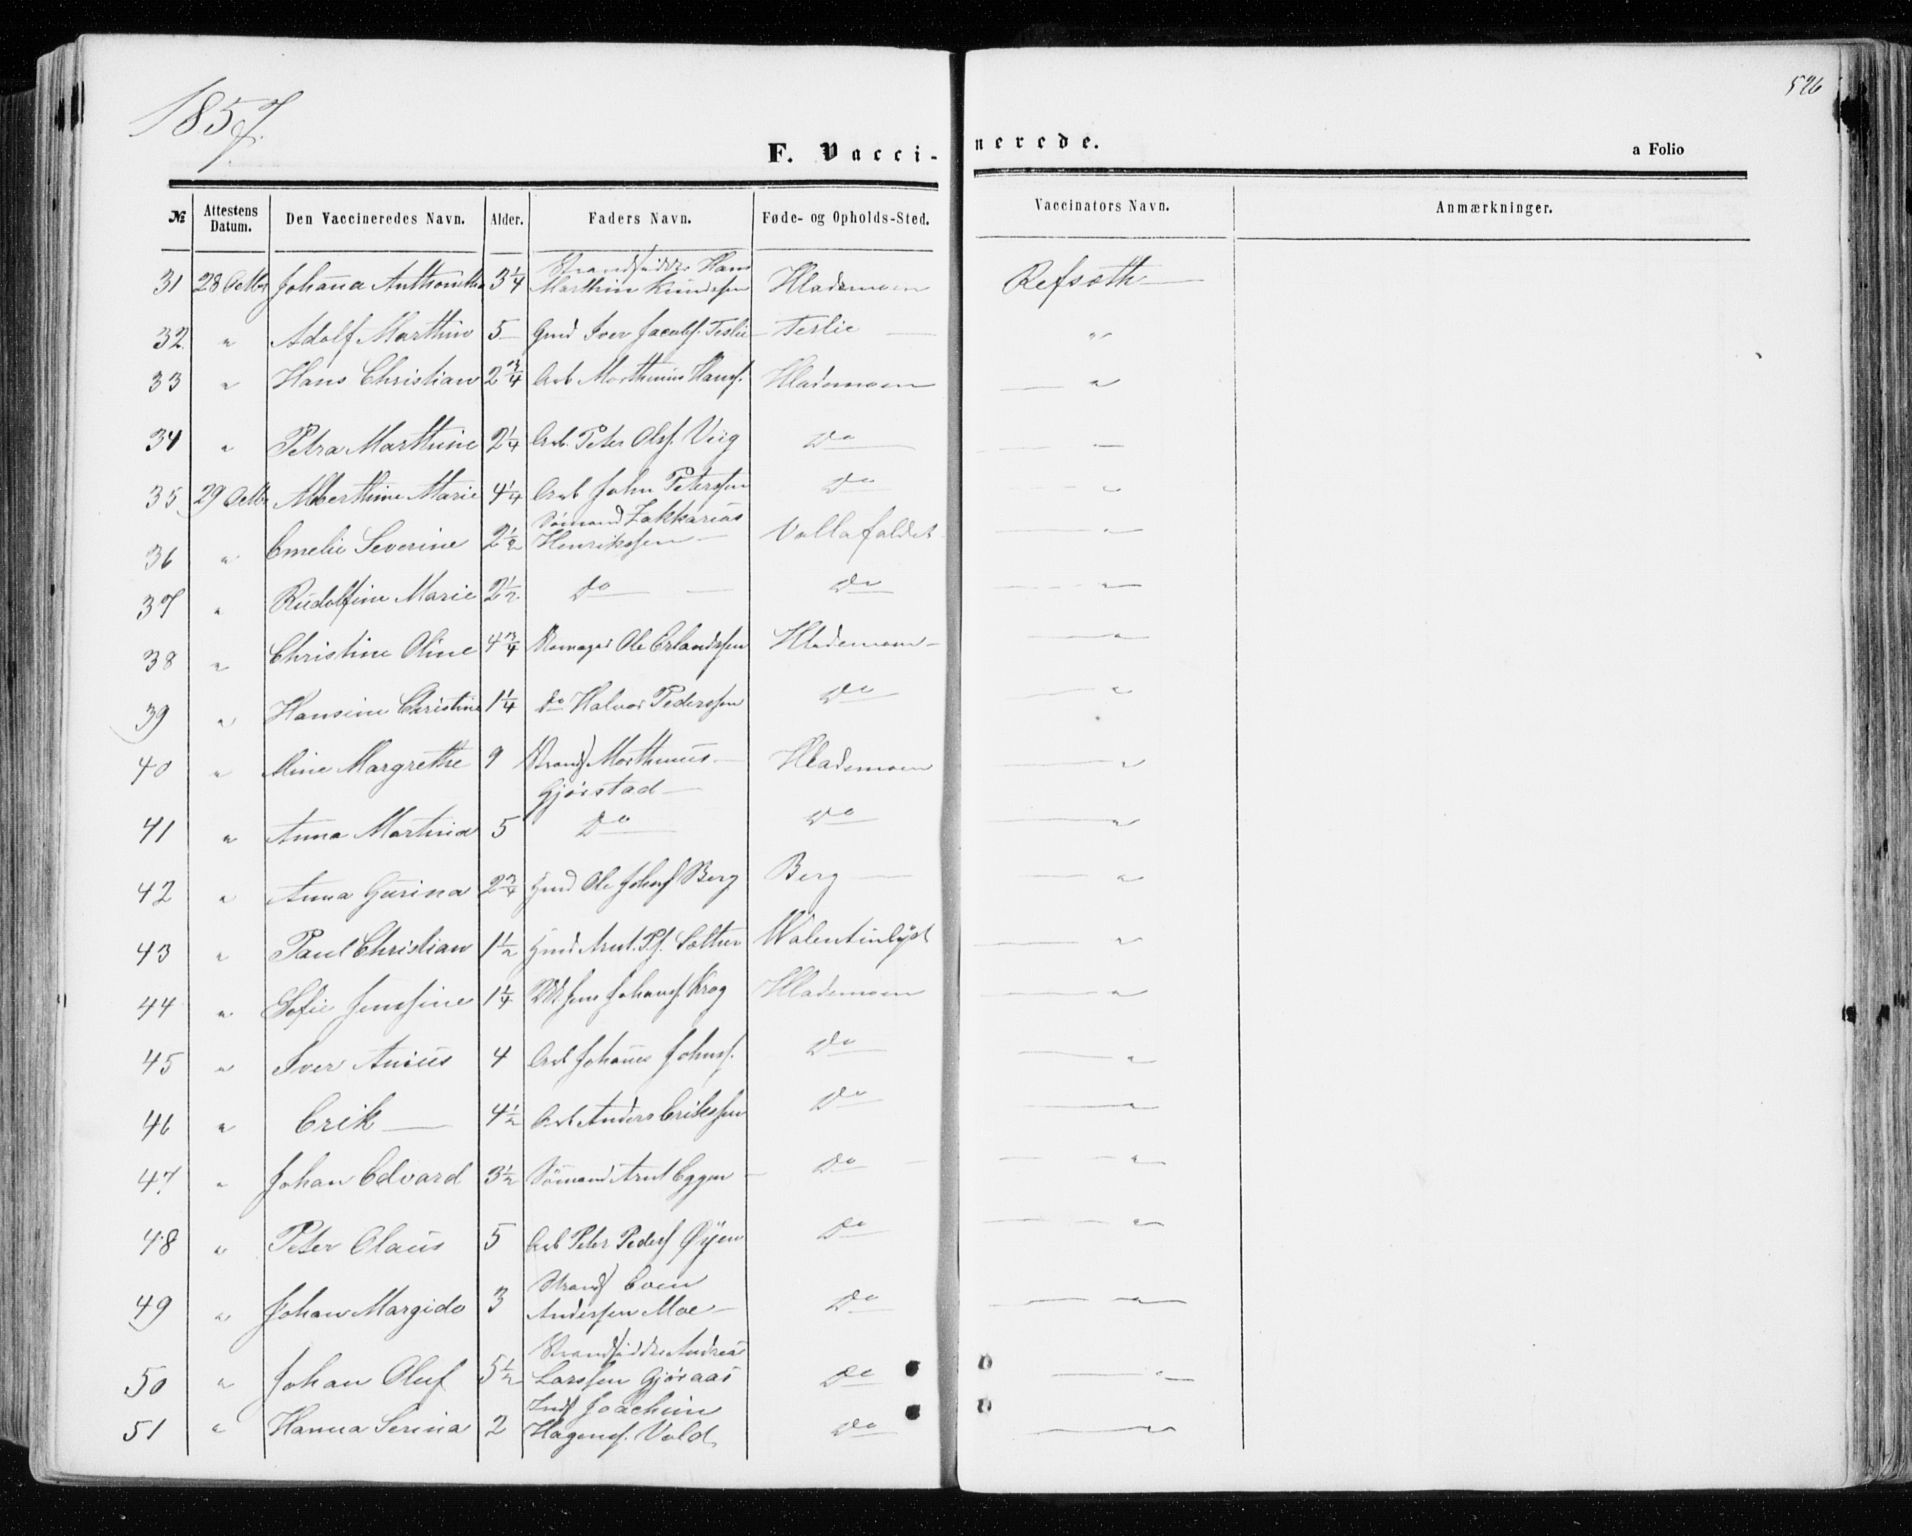 1857.
526
F. Vaccinerede.
a Folio
№ Attestens Datum. Den Vaccineredes Navn. Alder. Faders Navn. Føde- og Opholds-Sted. Vaccinators Navn. Anmærkninger.
31 28 Octbr Johana 3 1/4 Strandsidder Hans Marthin Knudssen Hlademoen Refsøth —
32 " Adolf Marthin 5 — Gmd Iver Jacobs. Teslie — Teslie — "
33 " Hans Christian 2 3/4 Arb Morthinus Hans. Hlademoen — "
34 " Petra Marthine 2 1/4 Arb. Peter Ols. Viig Do — —
35 29 Octbr Alberthine Marie 4 1/4 Arb John Peterssen Do — "
36 " Emelie Severine 2 1/2 Sömand Zakkarias Henrikssen — Vollafaldet — "
37 " Rudolfine Marie 2 1/2 Do — Do — "
38 " Christine Oline 4 3/4 Ole Erlandssen Hlademoen — — "
39 " Hansine Christine 1 1/4 do Halvor Pederssen Do — "
40 " Aline Margrethe 9 Strands Morthinus — Gjørstad — Hlademoen — "
41 " Anna Martina 5 Do Do — "
42 " Anna Gurina 2 3/4 Gmd Ole Johns Berg Berg — — "
43 " Paul Christian 1 1/2 Gmd Arnt. Ps. Walentinlyst — "
44 " Sofie Jenssine 1 1/4 Jens Johans. Krog Hlademoen — "
45 " Iver Anius 4 Arb Johanes Johns. Do — "
46 " Erik — 4 1/2 Arb Anders Erikssen Do — "
47 " Johan Edvard 3 1/2 Sömand Arnt Eggen — Do — — "
48 " Peter Olaus 5 Arb Peter Peders Øyen Do — "
49 " Johan Margido 3 Strands Even Anderssen Moe — Do — "
50 " Johan Oluf 5 1/2 Strandsidder Andreas Larssen Gjøraas Do — "
51 " Hanna Serina 2 Inds Joachim Hagens. Vold Do — "